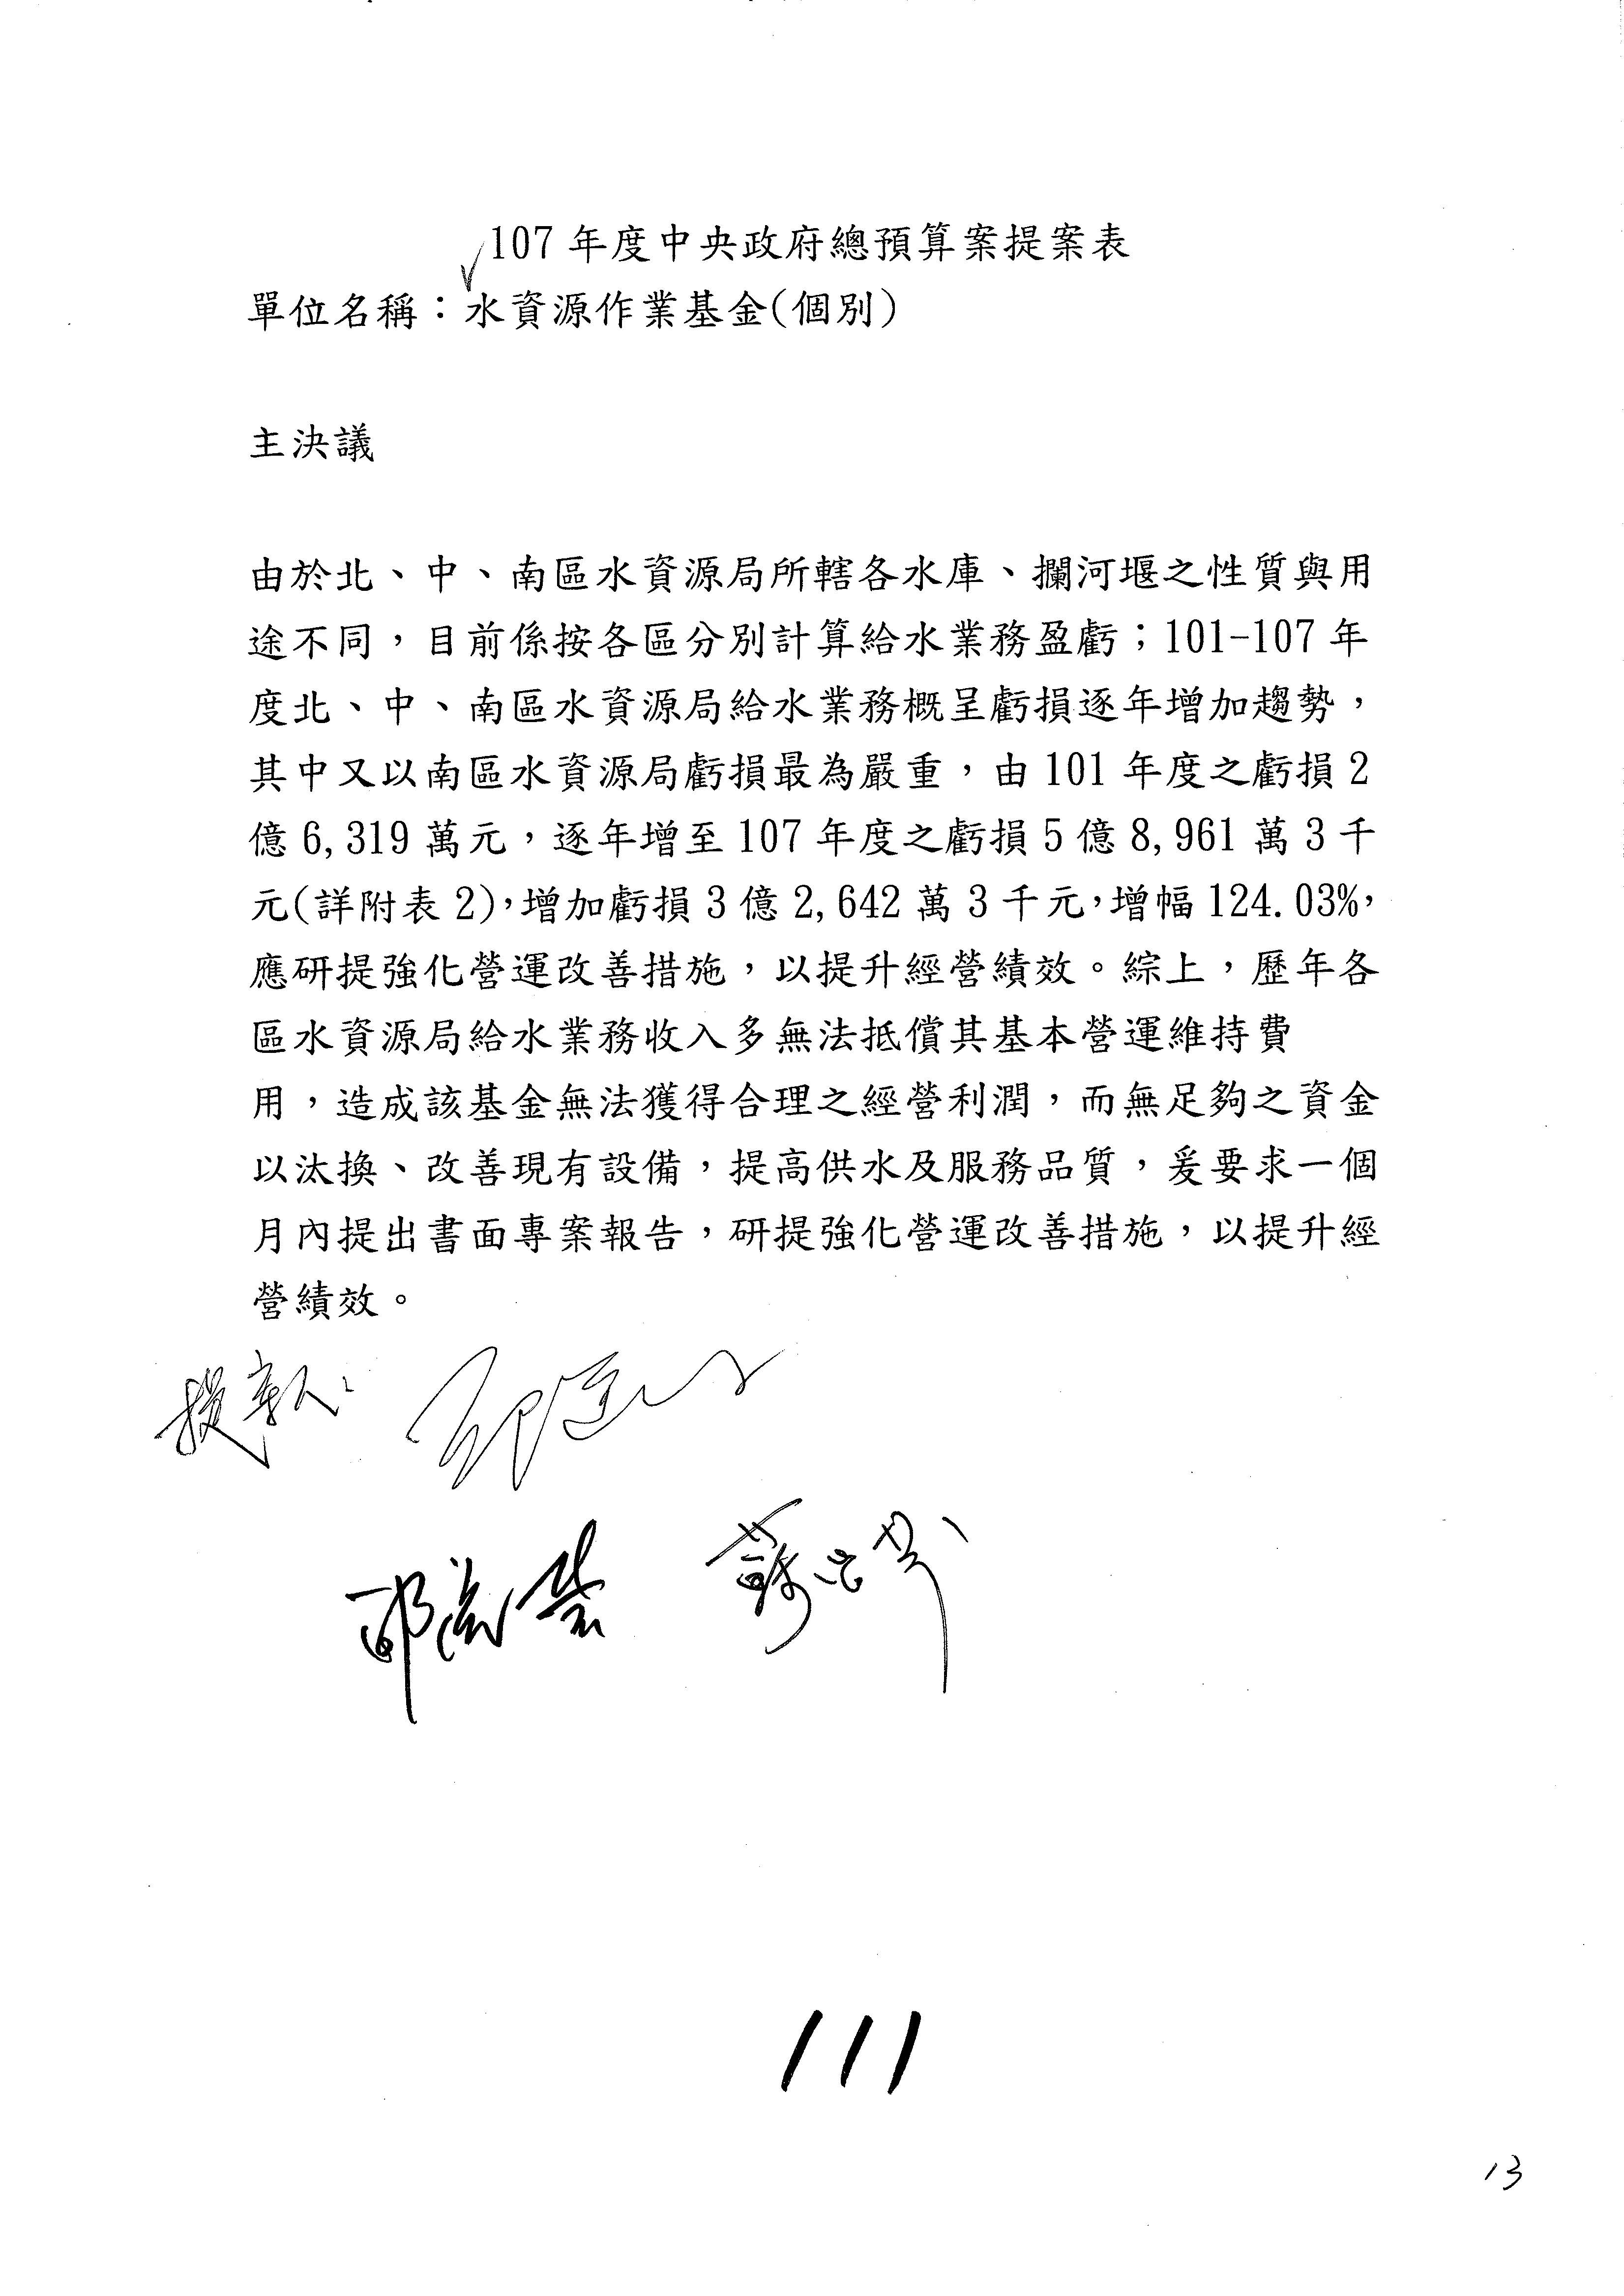 107 年度中央政府總預算案提案表
單位名稱：水資源作業基金(個別)
主決議
由於北、中、南區水資源局所轄各水庫、攔河堰之性質與用
途不同，目前係按各區分別計算給水業務盈虧；101-107 年
度北、中、南區水資源局給水業務概呈虧損逐年增加趨勢，
其中又以南區水資源局虧損最為嚴重，由 101 年度之虧損 2
億 6,319 萬元，逐年增至 107 年度之虧損 5 億 8,961 萬 3 千
元(詳附表 2)，增加虧損 3 億 2,642 萬 3 千元，增幅 124.03%，
應研提強化營運改善措施，以提升經營績效。綜上，歷年各
區水資源局給水業務收入多無法抵償其基本營運維持費
用，造成該基金無法獲得合理之經營利潤，而無足夠之資金
以汰換、改善現有設備，提高供水及服務品質，爰要求一個
月內提出書面專案報告，研提強化營運改善措施，以提升經
營績效。
提案人：
蘇治芬
111
13